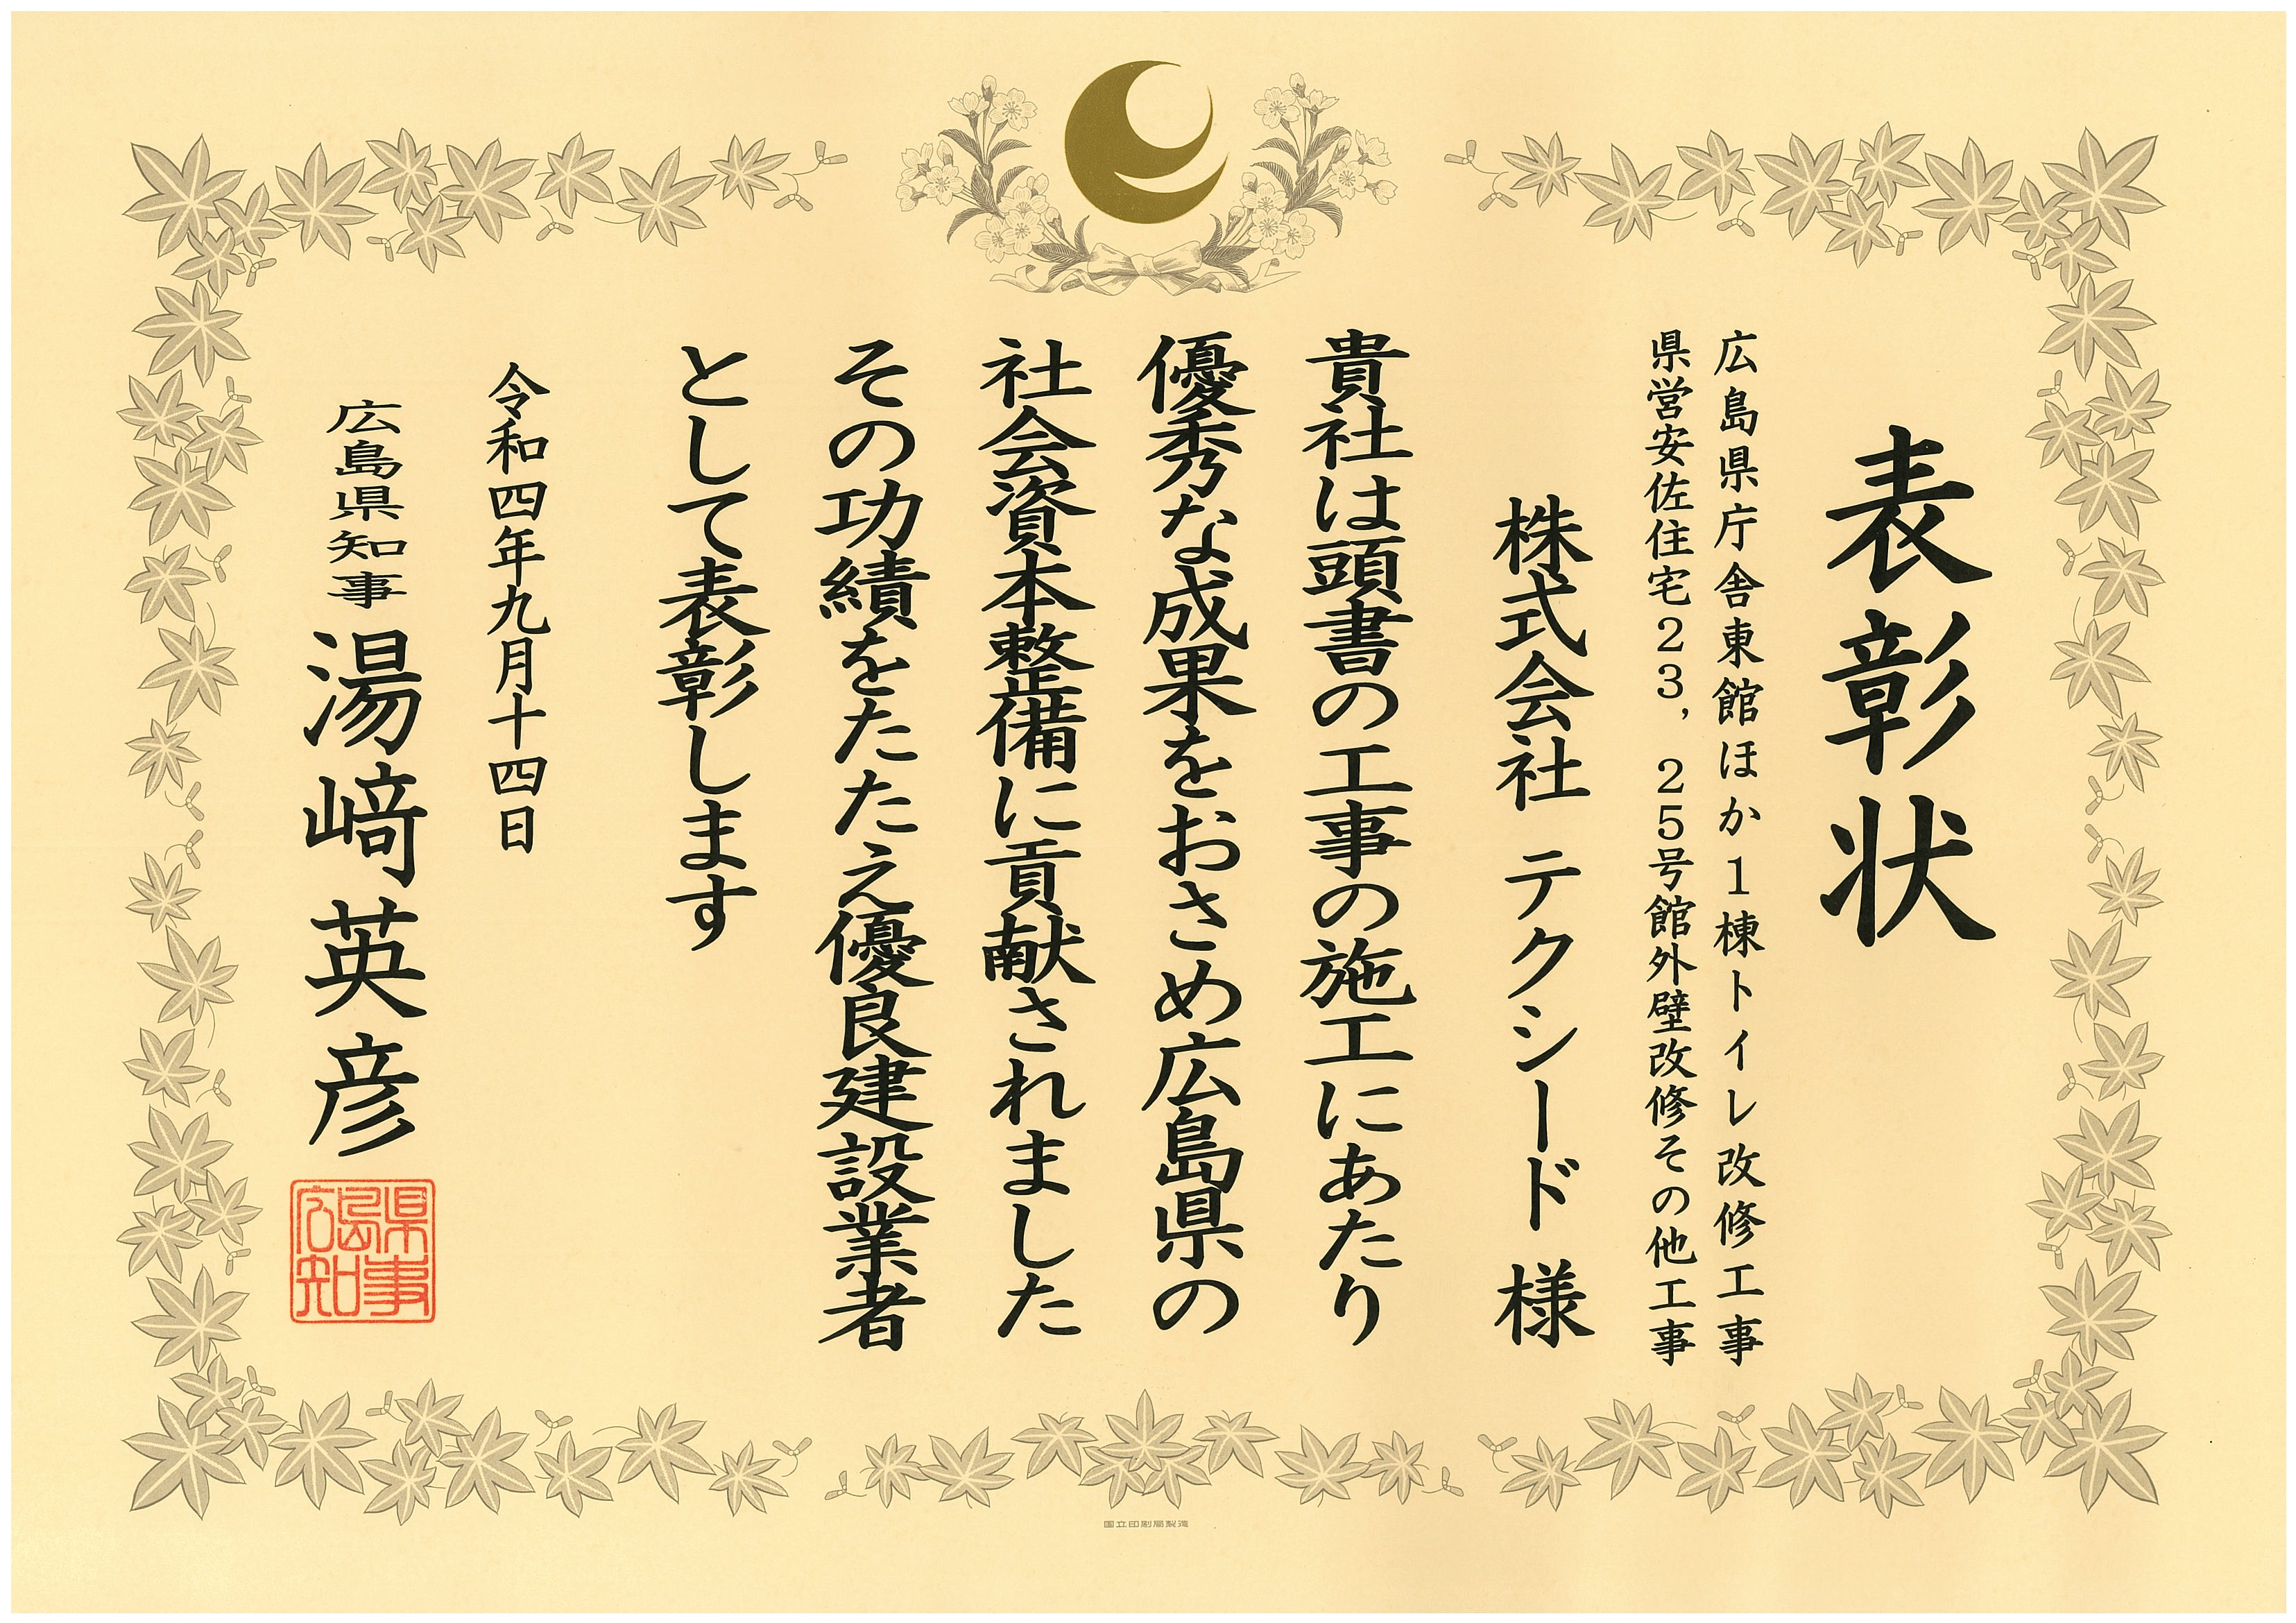 表彰状
広島県庁舎東館ほか1棟トイレ改修工事
県営安佐住宅23，25号館外壁改修その他工事
株式会社 テクシード 様
貴社は頭書の工事の施工にあたり
優秀な成果をおさめ広島県の
社会資本整備に貢献されました
その功績をたたえ優良建設業者
として表彰します
令和四年九月十四日
広島県知事 湯﨑英彦
広島県知事
国立印刷局製造